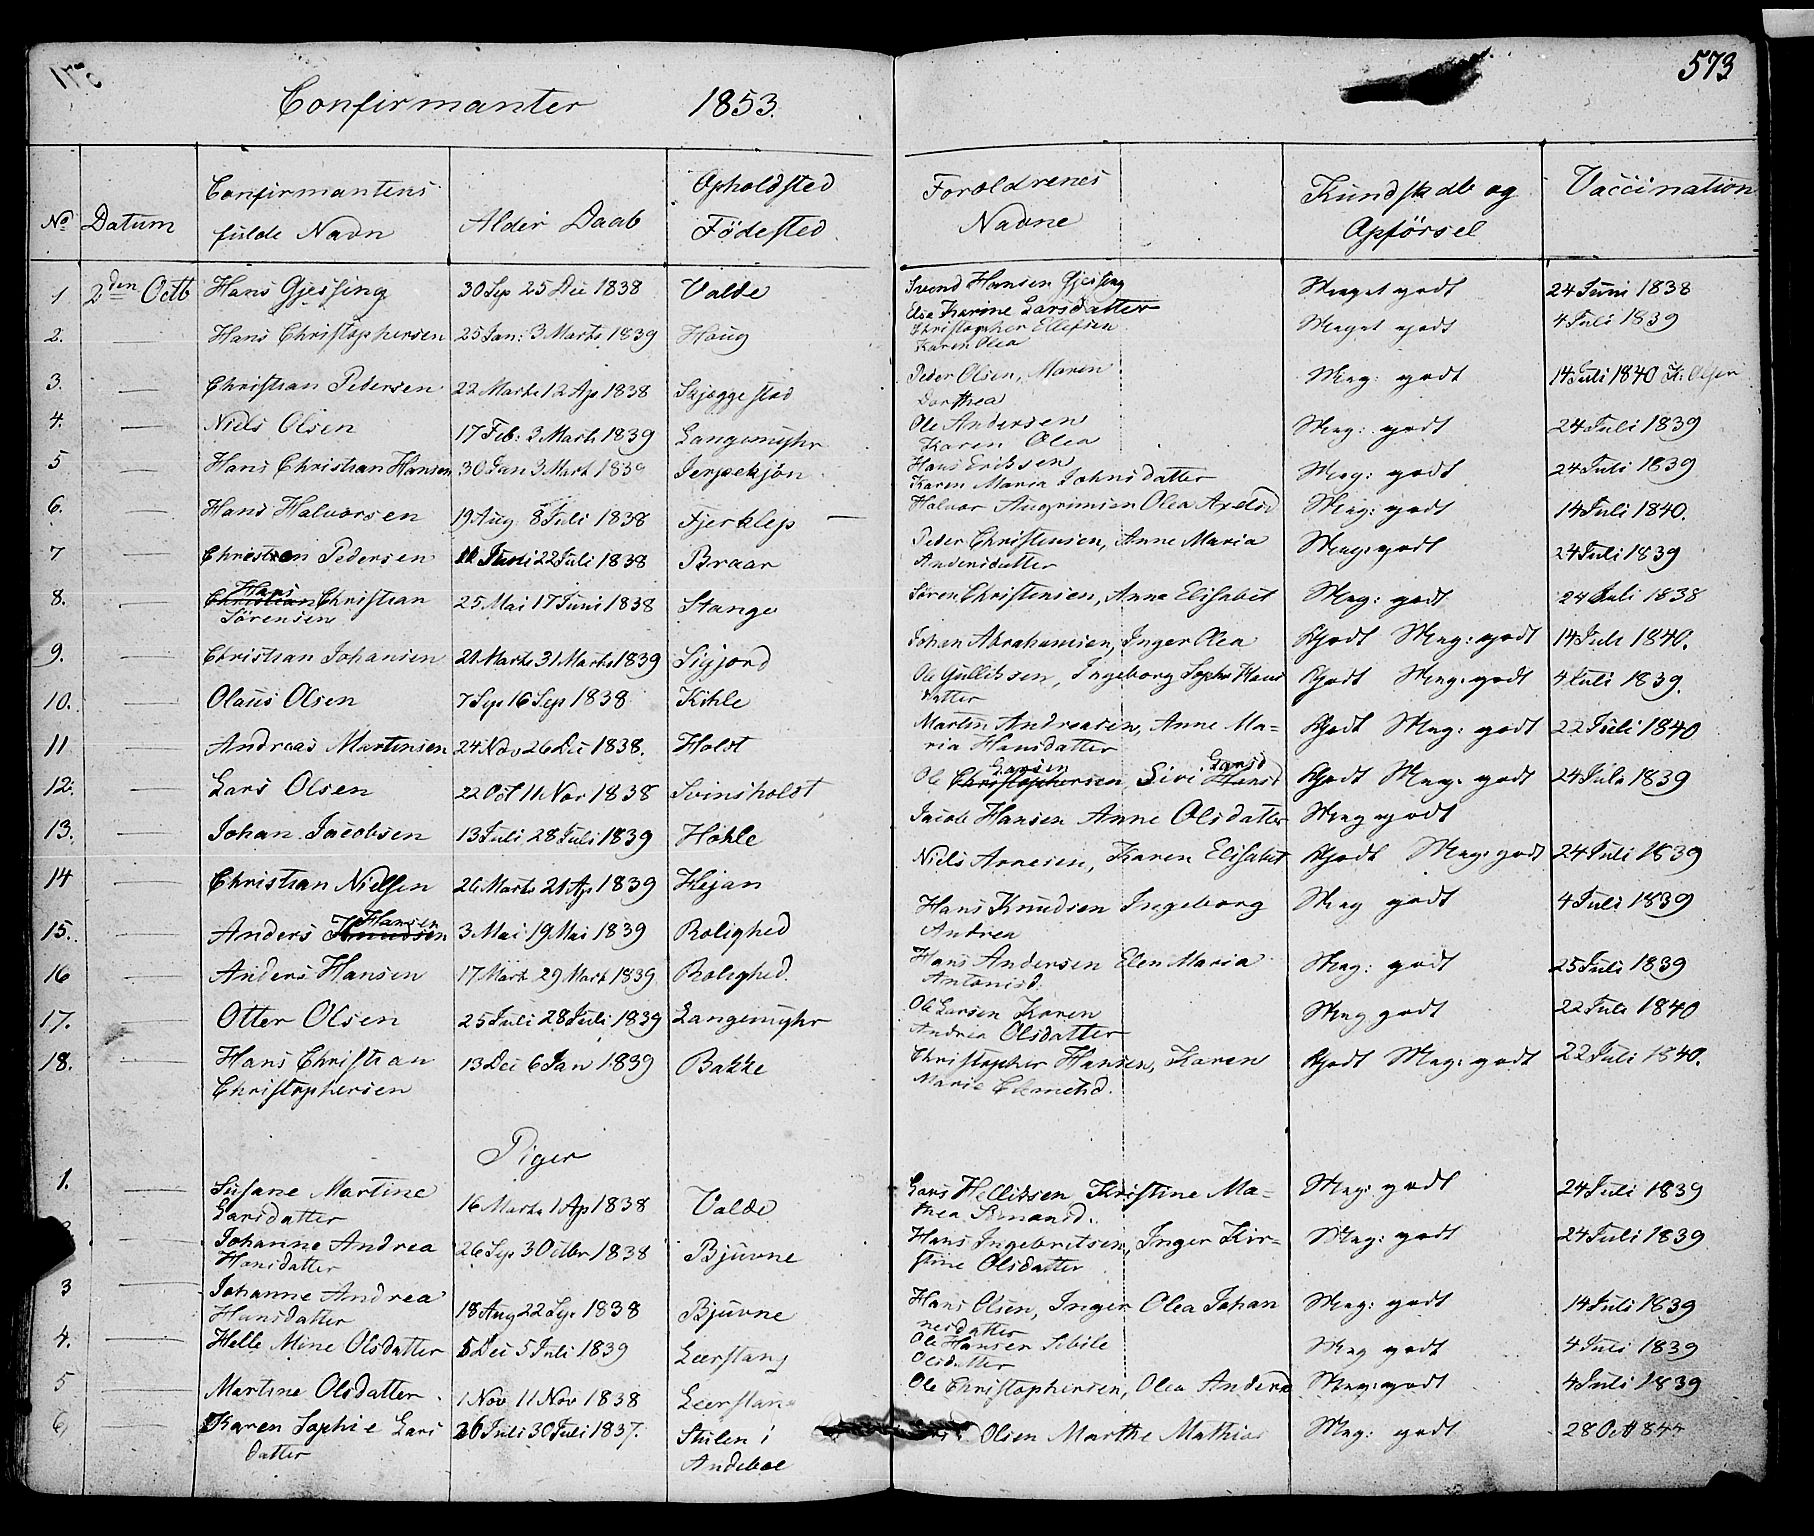 Confirmanter 1853. 573
No Datum Confirmantens fulde Navn Alder Daab Opholdsted Födested Foroldrenes Navne Kundskab og Opförsel Vaccination
1 2den Octb Hans Gjessing 30 Sep 25 Dec 1838 Valde Svend Hansen Gjessing Meget godt 24 Juni 1838
Else Karine Larsdatter
2. Hans Christophersen 25 Jan: 3 Marts 1839 Houg Christopher Ellefsen Meget godt 4 Juli 1839
Karen Olea
3. Christian Pedersen 22 Marts 12 Ap 1838 Skjeggestad Peder Olsen, Maren Meg: godt 14 Juli 1840
Dorthea
4. Niels Olsen 17 Feb: 3 Mart 1839 Langemyhr Ole Andersen Meg: godt 24 Juli 1839
Karen Olea
5 Hans Christian Hansen 30 Jan 3 Mart 1839 Jerpekjön Hans Eriksen Meg: godt 24 Juli 1839
Karen Maria Johnsdatter
6. Hans Halvorsen 19 Aug 8 Juli 1838 Fjerklep Halvor Olea Axelsd Meg: godt 14 Juli 1840.
7 Christen Pedersen Juni 22 Juli 1838 Braar Peder Christensen, Anne Maria Meg: godt 24 Juli 1839
Andersdatter
8. Hans Christian Christian 25 Mai 17 Juni 1838 Stange Sören Christensen, Anne Elisabet Meg: godt 24 Juli 1838
Sörensen
9. Christian Johansen 21 Marts 31 Marts 1839 Sigjord Johan Abrahamsen, Inger Olea Godt Meg: godt 14 Juli 1840.
10. Olaus Olsen 7 Sep 16 Sep 1838 Kihle Ole Gullichsen, Ingeborg Sophe Hans Godt Meg: godt 4 Juli 1839.
datter
11 Andreas Martinsen 24 Nov 26 Dec 1838. Holst Martin Andreasen, Anne Ma= Godt Meg: godt 22 Juli 1840
ria Hansdatter
12. Lars Olsen 22 Oct 11 Nov 1838 Svinsholst Ole Christophersen Larsen, Siri Hansd Larsd Godt Meg: godt 24 Juli 1839
13. Johan Jacobsen 13 Juli 28 Juli 1839 Hohle Jacob Hansen Anne Olsdatter Meg godt
14 Christian Nielsen 26 Marts 21 Ap 1839 Kejan Niels Arnesen, Karen Elisabet Godt Meg: godt 24 Juli 1839
15. Anders Knudsen Hansen 3 Mai 19 Mai 1839 Rolighed Hans Knudsen Ingeborg Meg godt 4 Juli 1839
Andrea
16 Anders Hansen 17 Mart 29 Mart 1839 Rolighed. Hans Andersen Elen Maria Meg: godt 25 Juli 1839
Antonisd.
17. Otter Olsen 25 Juli 28 Juli 1839 Langemyhr Ole Larsen Karen Meg godt 22 Juli 1840
Andrea Olsdatter
18. Hans Christian 13 Dec 6 Jan 1839 Bakke Christopher Hansen, Karen Godt Meg: godt 22 Juli 1840.
Christophersen Marie Clemetsd.
Piger
1. Susane Martine 16 Marts 1 Ap 1838 Valde Lars Kristine Ma= Meg: godt 24 Juli 1839
Larsdatter thea Simonsd.
Johanne Andrea 26 Sep 3 Octbr 1838 Bjuvne Hans Ingebretsen, Inger Kir= Meg: godt 24 Juli 1839
Hansdatter stine Olsdatter
3 Johanne Andrea 18 Aug 22 Sep 1838 Bjuvne Hans Olsen, Inger Olea Johan Meg: godt 14 Juli 1839
Hansdatter nesdatter
4. Helle Mine Olsdatter 5 Dec 5 Juli 1839 Leerstang Ole Hansen Sibile Meg godt 4 Juli 1839
Olsdatter
5 Martine Olsdatter 1 Nov 11 Nov 1838 Leerstang Ole Christophersen, Olea Anders Meg: godt 4 Juli 1839
6, Karen Sophie Lars 26 Juli 30 Juli 1837. Stulen i Olsen Marthe Mathias Meg: godt 28 Oct 1844
datter Andeboe